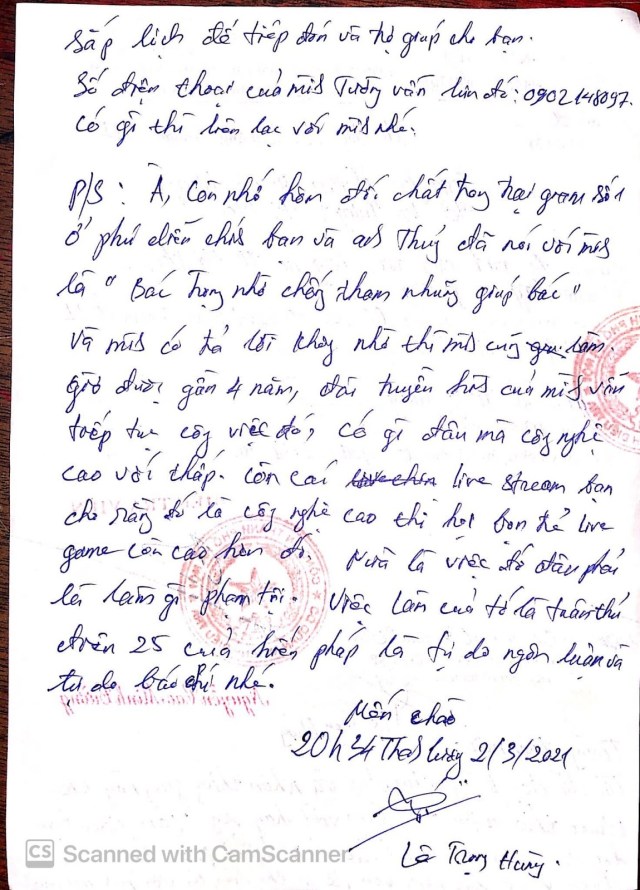 sắp lịch để tiếp đón và trợ giúp cho bạn.
Số điện thoại của mis Tường vẫn luôn đó: 0902148097.
Có gì thì liên lạc với mis nhé.
P/S: À, còn nhớ hôm đối chất trong trại giam số 1
ở phú diễn chis bạn và anh Thuý đã nói với mis
là " Bác Trọng nhờ chống tham nhũng giúp bác"
và mis có trả lời không nhờ thì mis cũng làm.
giờ được gần 4 năm, đài truyền his của mis vẫn
tiếp tục công việc đó, có gì đâu mà công nghệ
cao với thấp. Còn cái live stream bạn
cho rằng đó là công nghệ cao thì hội bọn trẻ live
game còn cao hơn đó. Nữa là việc đó đâu phải
là làm gì phạm tội. Việc làm của tớ là tuân thủ
điều 25 của hiến pháp là tự do ngôn luận và
tự do báo chí nhé.
Mến chào
20h34 Thăng Long 2/3/2021
Lê Trọng Hùng.
CS Scanned with CamScanner